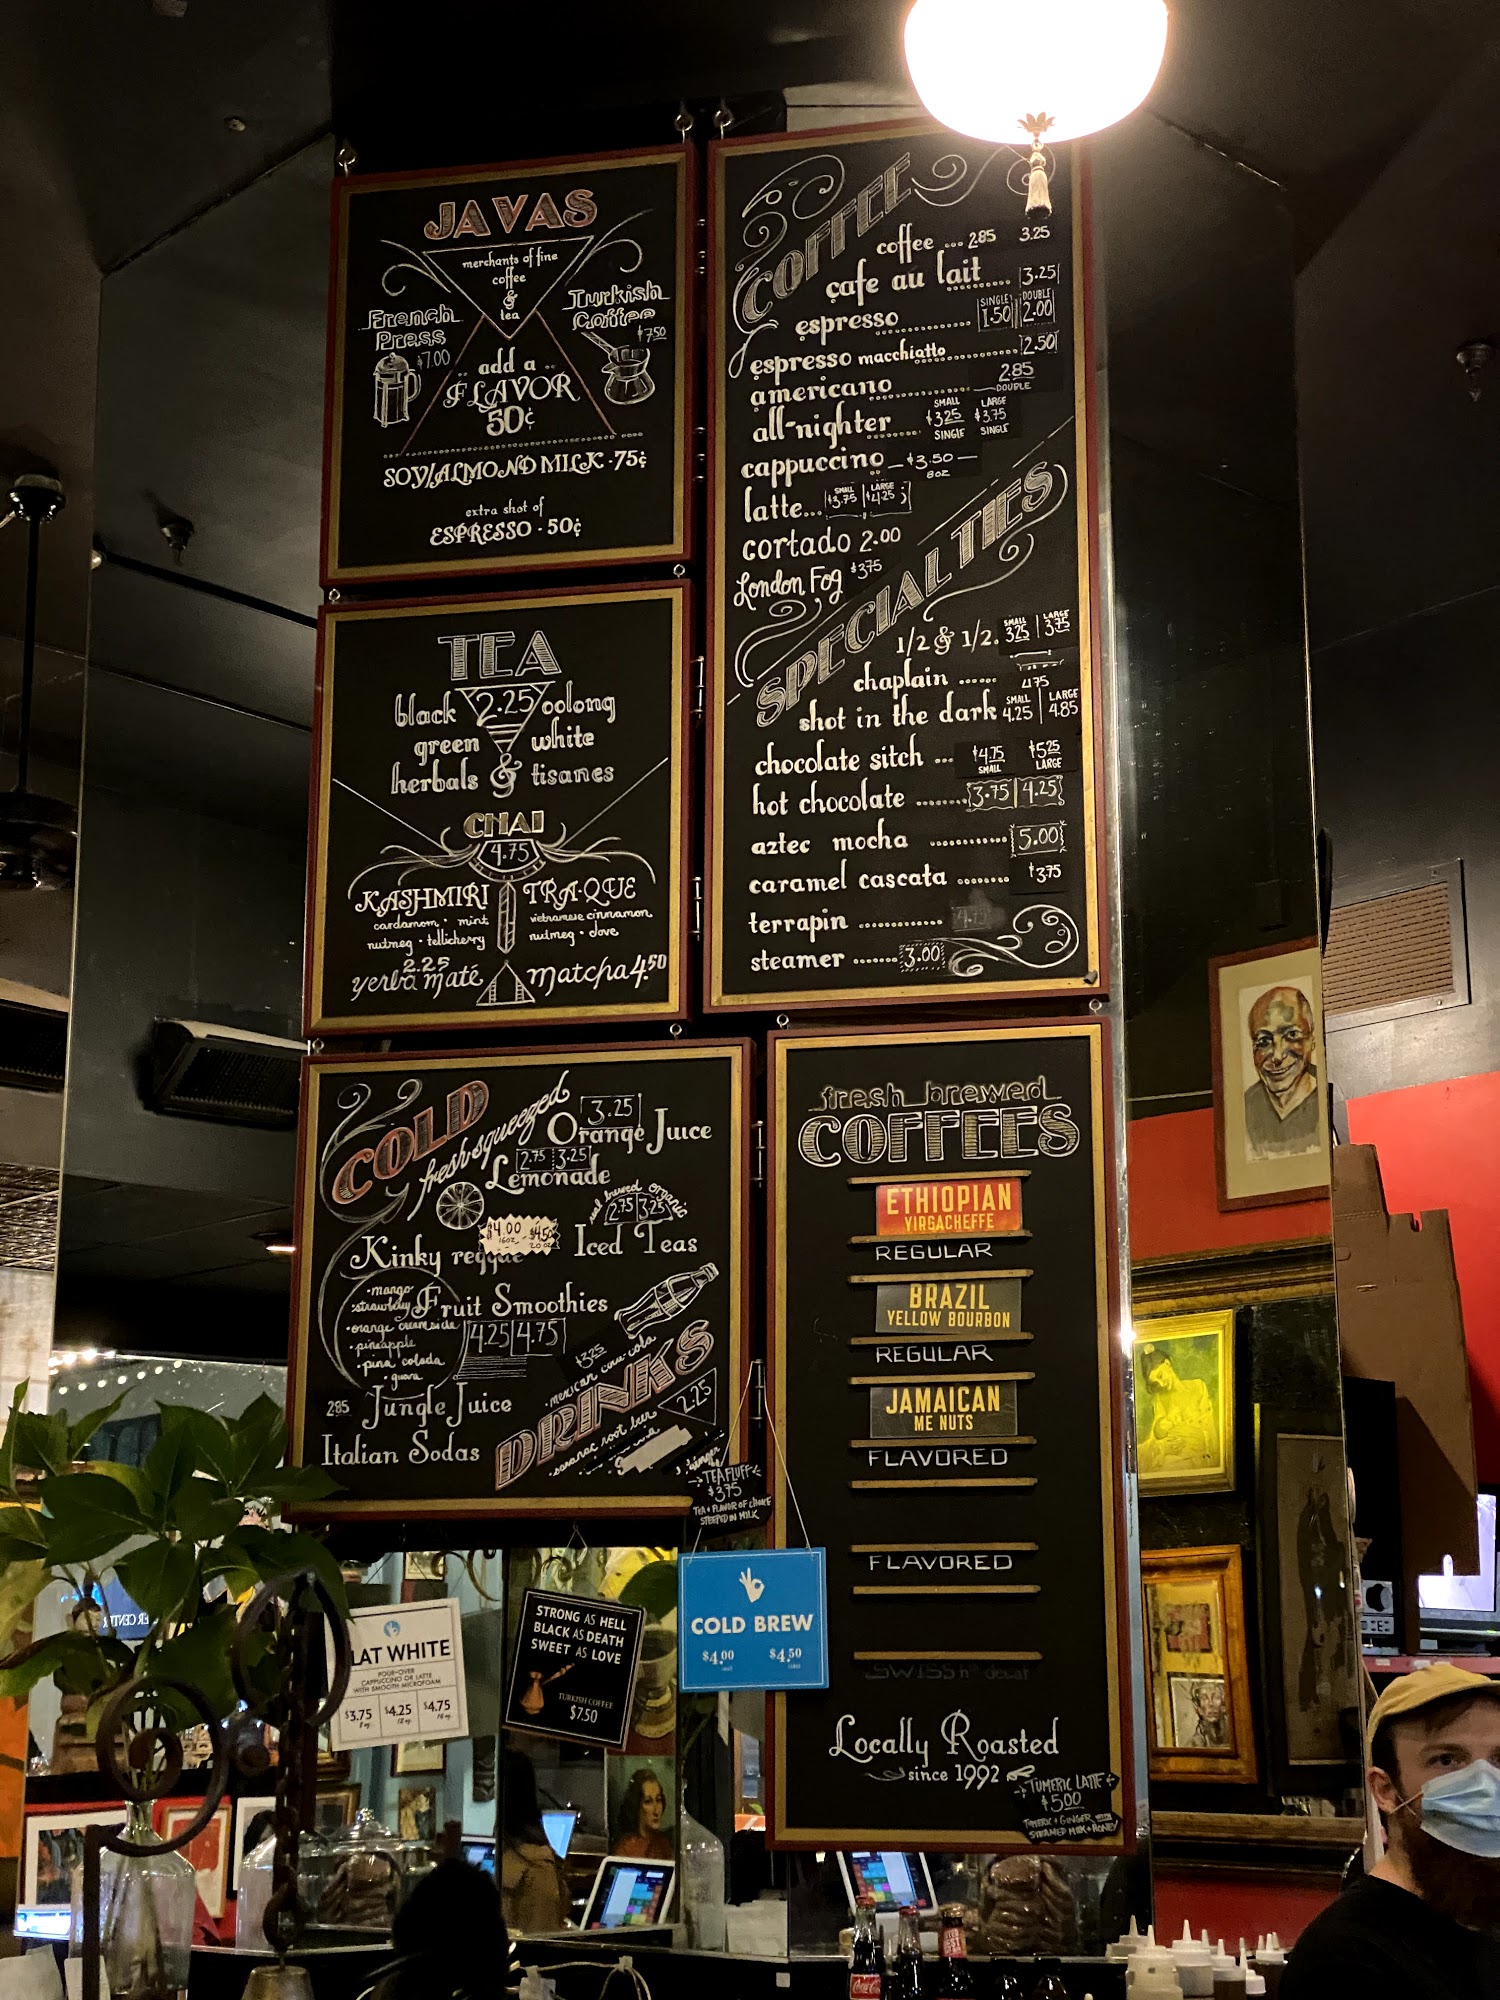 JAVAS
merchants of fine
coffee
&
tea
French
Press
$7.00
Turkish
Coffee
$7.50
add a
FLAVOR
50¢
SOY/ALMOND MILK · 75¢
extra shot of
ESPRESSO · 50¢
TEA
black 2.25 oolong
green white
herbals & tisanes
CHAI
4.75
KASHMIRI
cardamom · mint
nutmeg · tellicherry
TRA·QUE
vietnamese cinnamon
nutmeg · clove
2.25
yerba maté
matcha 4.50
COFFEE
coffee ... 2.85 3.25
cafe au lait ........ 3.25
SINGLE DOUBLE
espresso ............ 1.50 2.00
espresso macchiatto ............ 2.50
americano ............ 2.85
DOUBLE
SMALL LARGE
all-nighter ....... $3.25 $3.75
SINGLE SINGLE
cappuccino — $3.50 —
8OZ
SMALL LARGE
latte... $3.75 $4.25
cortado 2.00
London Fog $3.75
SPECIALTIES
SMALL LARGE
1/2 & 1/2. 3.25 3.75
chaplain ...... 4.75
SMALL LARGE
shot in the dark 4.25 4.85
chocolate sitch ... $4.75 $5.25
SMALL LARGE
hot chocolate ........ 3.75 4.25
aztec mocha ............ 5.00
caramel cascata ........ $3.75
terrapin ............. 4.75
steamer ....... 3.00
COLD
fresh-squeezed
3.25
Orange Juice
2.75 3.25
Lemonade
brewed organic
2.75 3.25
Iced Teas
$4.00 $4.50
16oz 20 oz
Kinky reggae
Fruit Smoothies
4.25 4.75
· mango
· strawberry
· orange creamsicle
· pineapple
· pina colada
· guava
2.85 Jungle Juice
Italian Sodas
$3.25
mexican coca-cola
DRINKS
2.25
saranac root beer
ginger
TEA FLUFF
$3.75
TEA + FLAVOR OF CHOICE
STEEPED IN MILK
fresh brewed
COFFEES
ETHIOPIAN
YIRGACHEFFE
REGULAR
BRAZIL
YELLOW BOURBON
REGULAR
JAMAICAN
ME NUTS
FLAVORED
FLAVORED
SWISS decaf
Locally Roasted
since 1992
TUMERIC LATTE
$5.00
TUMERIC + GINGER WITH
STEAMED MILK + HONEY
LAT WHITE
POUR-OVER
CAPPUCCINO OR LATTE
WITH SMOOTH MICROFOAM
$3.75 $4.25 $4.75
8 oz. 12 oz. 16 oz.
STRONG AS HELL
BLACK AS DEATH
SWEET AS LOVE
TURKISH COFFEE
$7.50
COLD BREW
$4.00 $4.50
Coca-Cola